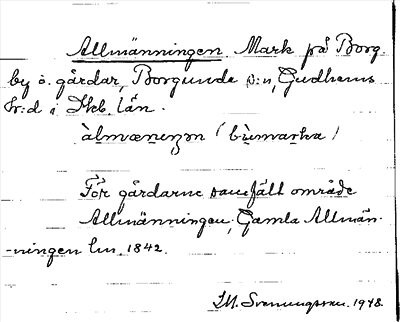 Allmänningen. Mark på Borg-
by o. gårdar, Borgunda s:n, Gudhems
hr:d i Skb. län.
àlmæneŋən (bỳmarka)
För gårdarne samfält område
Allmänningen; Gamla Allmän-
-ningen lm 1842.
J. M. Svenungsson. 1948.